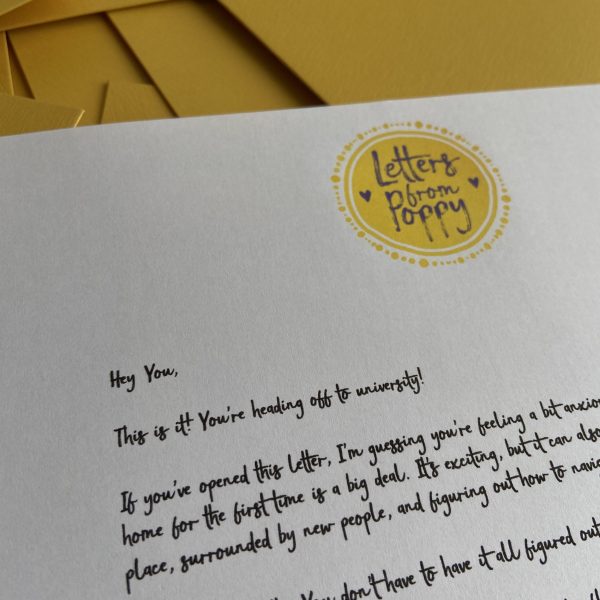 Letters
from
Poppy
Hey You,
This is it! You're heading off to university!
If you've opened this letter, I'm guessing you're feeling a bit anxiou
home for the first time is a big deal. It's exciting, but it can also
place, surrounded by new people, and figuring out how to navig
You don't have to have it all figured out